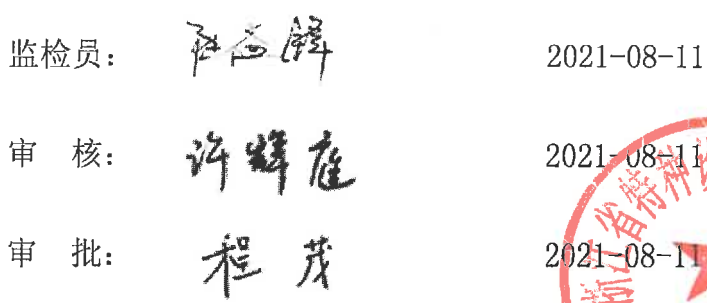 监检员: 2021-08-11
审 核: 许辉庭 2021-08-11
审 批: 程茂 2021-08-11
浙江省特种